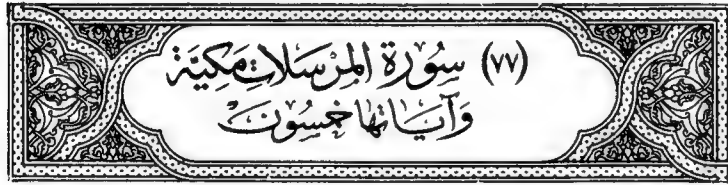 (٧٧) سُورَة المرسَلاتِ مَكيَّة
وَآيَاتها خمسُونَ